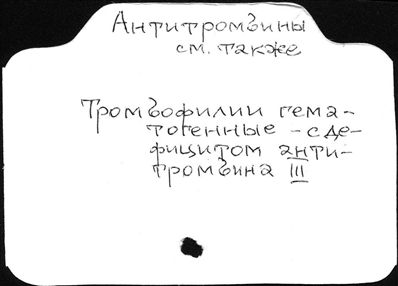 Антитромбины
см. также
Тромбофилии гема-
тогенные - с де-
фицитом анти-
тромбина III